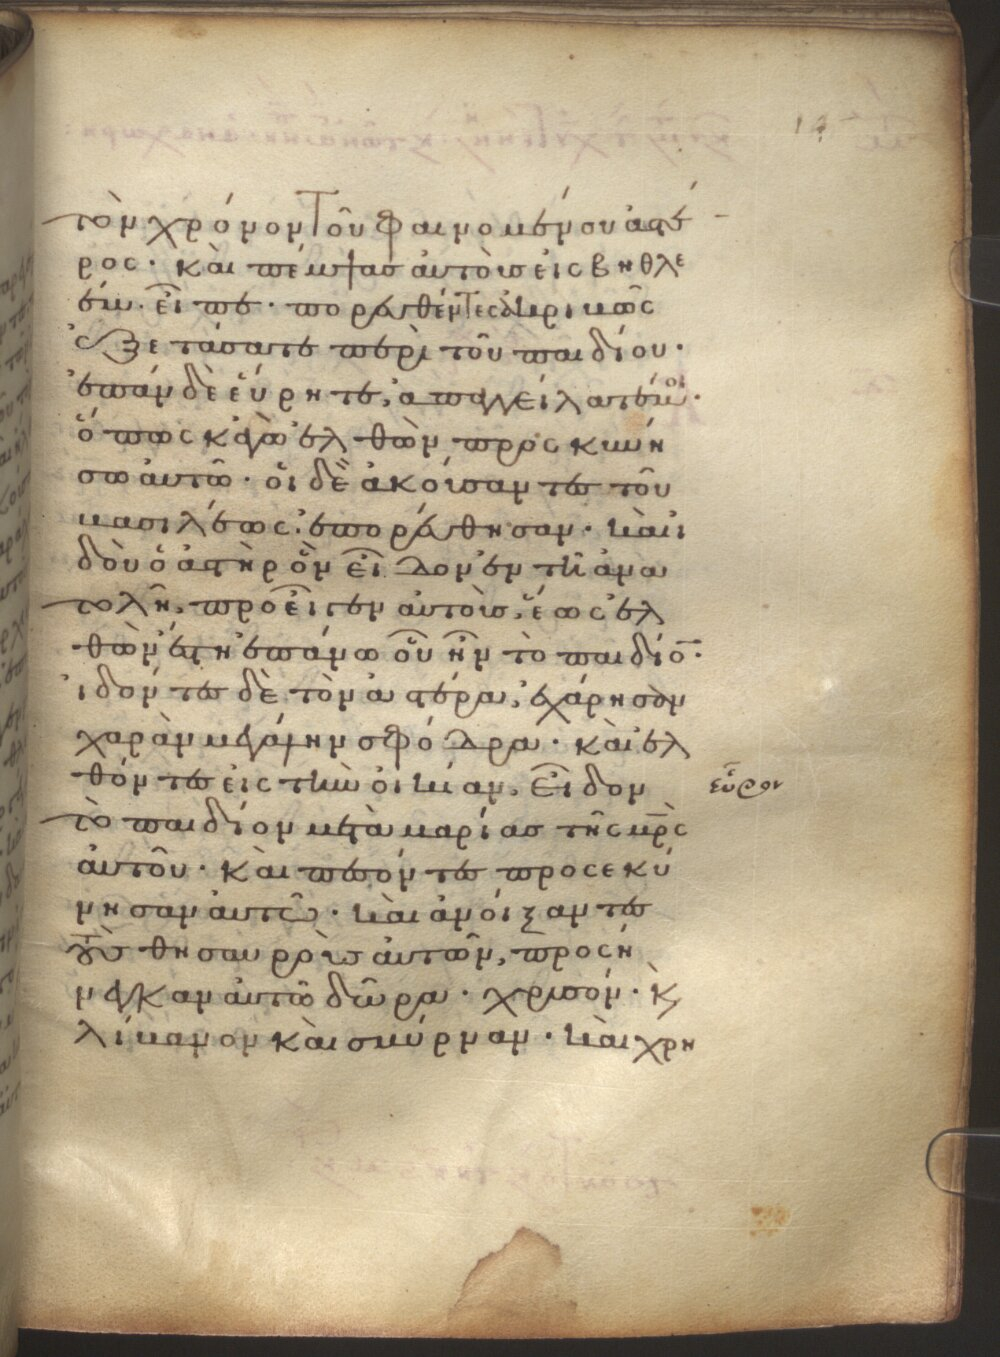 τὸν χρόνον τοῦ φαινομένου ἀστέ
ρος· καὶ πέμψας αὐτοὺς εἰς βηθλε
ὲμ· εἶπε· πορευθέντες ἀκριβῶς
ἐξετάσατε περὶ τοῦ παιδίου·
ἐπὰν δὲ εὕρητε, ἀπαγγείλατέ μοι·
ὅπως κἀγὼ ἐλθὼν προσκυνή
σω αὐτῶ· οἱ δὲ ἀκούσαντες τοῦ
βασιλέως, ἐπορεύθησαν· καὶ ἰ
δοὺ ὁ ἀστὴρ ὃν εἶδον ἐν τῆ ἀνα
τολῆ, προῆγεν αὐτοὺς, ἕως ἐλ
θὼν ἔστη ἐπάνω οὗ ἦν τὸ παιδίον·
ἰδόντες δὲ τὸν ἀστέρα, ἐχάρησαν
χαρὰν μεγάλην σφόδρα· καὶ ἐλ
θόντες εἰς τὴν οἰκίαν, εἶδον
εὗρον
τὸ παιδίον μετὰ μαρίας τῆς μρς
αὐτοῦ· καὶ πεσόντες προσεκύ
νησαν αὐτῶ· καὶ ἀνοίξαντες
τοὺς θησαυροὺς αὐτῶν, προσή
νεγκαν αὐτῶ δῶρα· χρυσόν· κ
λίβανον καὶ σμύρναν· καὶ χρη